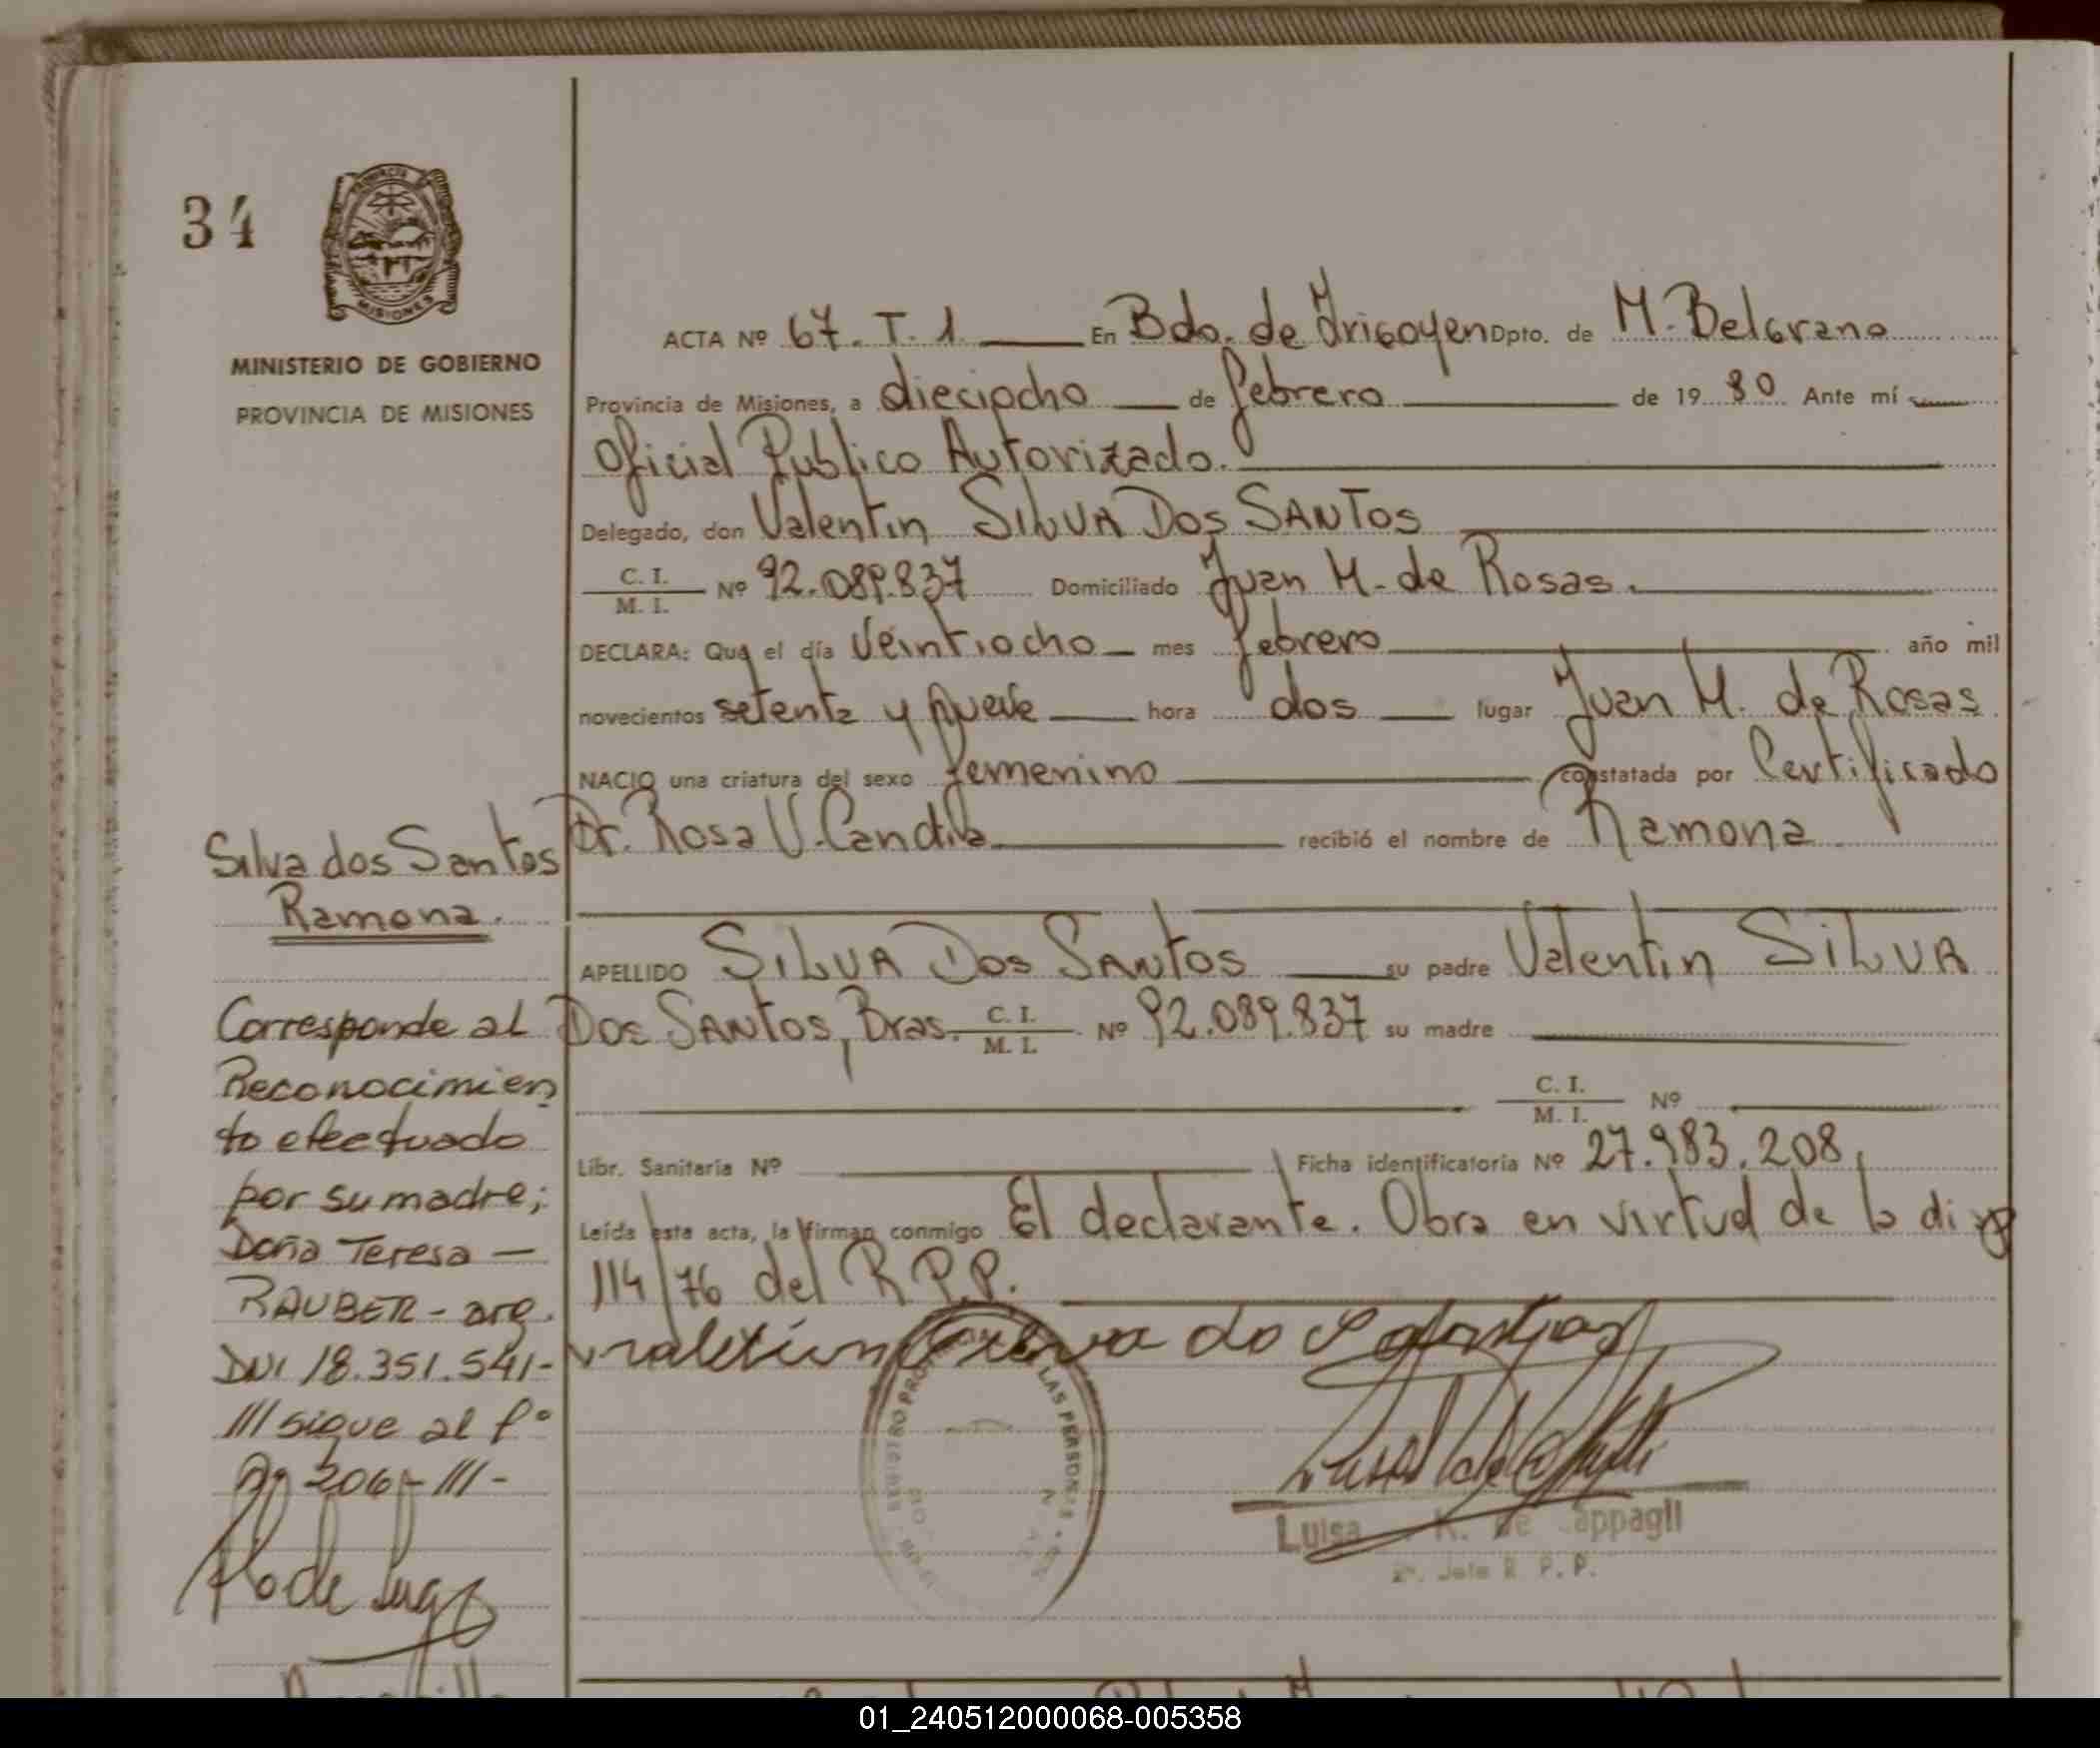 34
PROVINCIA DE
MISIONES
MINISTERIO DE GOBIERNO
PROVINCIA DE MISIONES
ACTA Nº 67. T. 1 En Bdo. de Irigoyen Dpto. de M. Belgrano
Provincia de Misiones, a dieciocho de febrero de 19 80 Ante mí
Oficial Publico Autorizado.
Delegado, don Valentin SILVA DOS SANTOS
C. I. / M. I. Nº 92.089.837 Domiciliado Juan M. de Rosas.
DECLARA: Que el día Veintiocho mes febrero año mil
novecientos setenta y nueve hora dos lugar Juan M. de Rosas
NACIO una criatura del sexo femenino constatada por Certificado
Dr. Rosa V. Candia recibió el nombre de Ramona
APELLIDO SILVA DOS SANTOS su padre Valentin SILVA
DOS SANTOS, Bras. C. I. / M. I. Nº 92.089.837 su madre
C. I. / M. I. Nº
Libr. Sanitaria Nº Ficha identificatoria Nº 27.983.208
Leída este acta, la firman conmigo El declarante. Obra en virtud de la disp
114/76 del R.P.P.
Silva dos Santos
Ramona.
Corresponde al
Reconocimien
to efectuado
por su madre;
Doña Teresa —
RAUBER - arg.
DNI 18.351.541-
/// sigue al fº
Nº 206 - /// -
LAS PERSONAS
Luisa K. de Cappagli
2º. Jefe R. P. P.
01_240512000068-005358